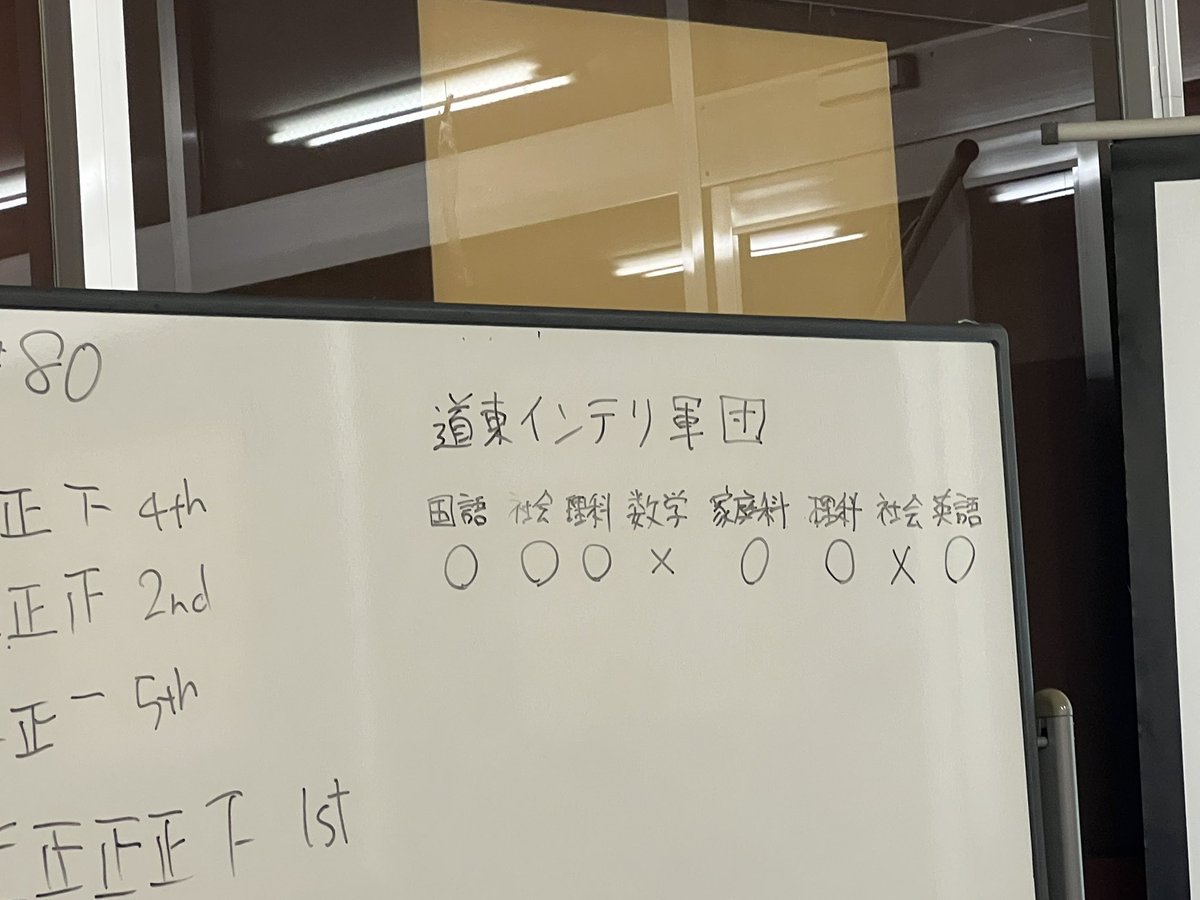 80
道東インテリ軍団
国語 社会 理科 数学 家庭科 理科 社会 英語
○ ○ ○ × ○ ○ × ○
正下 4th
正正 2nd
正一 5th
正正正下 1st